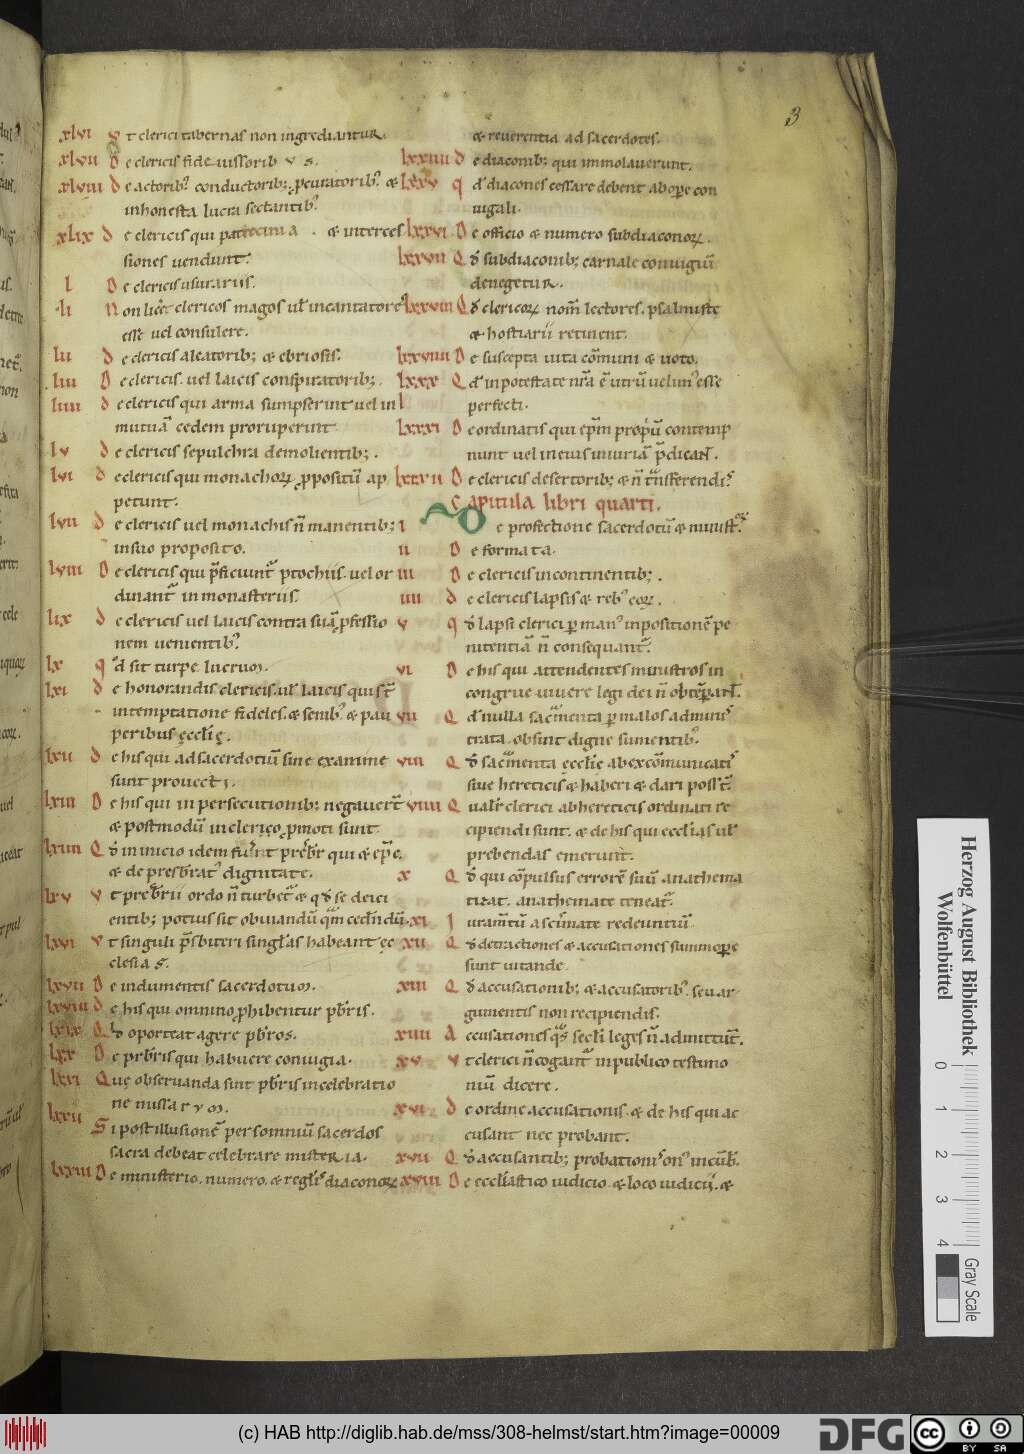 3
xlvi Vt clerici tabernas non ingrediantur.
xlvii De clericis fideiussorib; v s.
xlviii De actorib; conductorib; ꝓcuratorib; &
inhonesta lucra sectantib;
xlix de clericis qui patrocinia . & interces
siones uendunt.
l De clericis usurariis.
li Non licēt clericos magos ul' incantatores
esse uel consulere.
lii de clericis aleatorib; & ebriosis.
liii De clericis. uel laicis conspiratorib;
liiii de clericis qui arma sumpserint uel in
mutuā cedem proruperint
lv de clericis sepulchra demolientib; .
lvi de clericis qui monachoꝝ ꝓpositū ap
petunt.
lvii de clericis uel monachis n̄ manentib;
in suo proposito.
lviii De clericis qui p̄ficiunt ptochiis. uel or
dinant in monasteriis.
lix de clericis uel laicis contra suā ꝓfessio
nem uenientib;
lx qd sit turpe lucrum.
lxi de honorandis clericis. ul' laicis qui st̄
in temptatione fideles. & semb; & pau
peribus ęcclię.
lxii de his qui ad sacerdotiū sine examine
sunt prouecti.
lxiii De his qui in persecutionib; negauert̄
& postmodū in clerico ꝓmoti sunt
lxiiii Qd in inicio idem fuerit prēbr qui & ep̄c
& de presbrat' dignitate.
lxv Vt prēbrii ordo n̄ turbet & qd se deici
entib; potius sit obuiandū qm cedndū
lxvi Vt singuli p̄sbiteri singlas habeant ęc
clesias.
lxvii De indumentis sacerdotum.
lxviii de his qui omnino ꝓhibentur pbris.
lxix Qd oporteat agere pbros.
lxx De prbris qui habuere coniugia.
lxxi Quę obseruanda sint pbris in celebratio
ne missarum.
lxxii Si post illusionē per somniū sacerdos
sacra debeat celebrare misteria.
lxxiii De ministerio. numero. & reglis diaconoꝝ
& reuerentia ad sacerdotes.
lxxiiii de diaconib; qui immolauerunt.
lxxv qd diacones cessare debent ab opere con
iugali.
lxxvi De officio & numero subdiaconoꝝ.
lxxvii Qd subdiaconib; carnale coniugiū
denegetur.
lxxviii Qd clericoꝝ nom̄ lectores. psalmiste
& hostiarii retinent.
lxxviiii De suscepta uita cōmuni & uoto.
lxxx Qd in potestate nr̄a ē utrū uelim' esse
perfecti.
lxxxi De ordinatis qui ep̄m propū contemp
nunt uel in eius iniuriā p̄dicant.
lxxxii De clericis desertorib; & n̄ trānsferendis
Capitula libri quarti.
i De profectione sacerdotū & ministroꝝ.
ii De formata.
iii De clericis incontinentib; .
iiii de clericis lapsis & reb; eoꝝ.
v qd lapsi clerici ꝑ man' inpositionē pe
nitentiā n̄ consequant.
vi De his qui attendentes ministros in
congrue uiuere legi dei n̄ obtēperant.
vii Qd nulla sacmenta ꝑ malos adminis
trata. obsint digne sumentib;
viii Qd sacmenta ecclie ab excōmunicatis
siue hereticis & haberi & dari possit.
viiii Qualr clerici ab hereticis ordinati re
cipiendi sunt. & de his qui ecclias ul'
prebendas emerunt.
x Qd qui cōpulsus errorē suū anathema
tizat. anathemate teneat.
xi Iuramtū a scismate redeuntiū.
xii Qd detractiones & accusationes summopere
sunt uitande.
xiii Qd accusationib; & accusatorib; seu ar
gumentis non recipiendis.
xiiii Accusationes qs secli leges n̄ admittunt.
xv Vt clerici n̄ cogant in publico testimo
niū dicere.
xvi de ordine accusationis. & de his qui ac
cusant nec probant.
xvii Qd accusantib; probationis on' incūb.
xviii De ecclastico iudicio. & loco iudicii. &
Herzog August Bibliothek
Wolfenbüttel
0 1 2 3 4
Gray Scale
(c) HAB http://diglib.hab.de/mss/308-helmst/start.htm?image=00009
DFG
cc BY SA